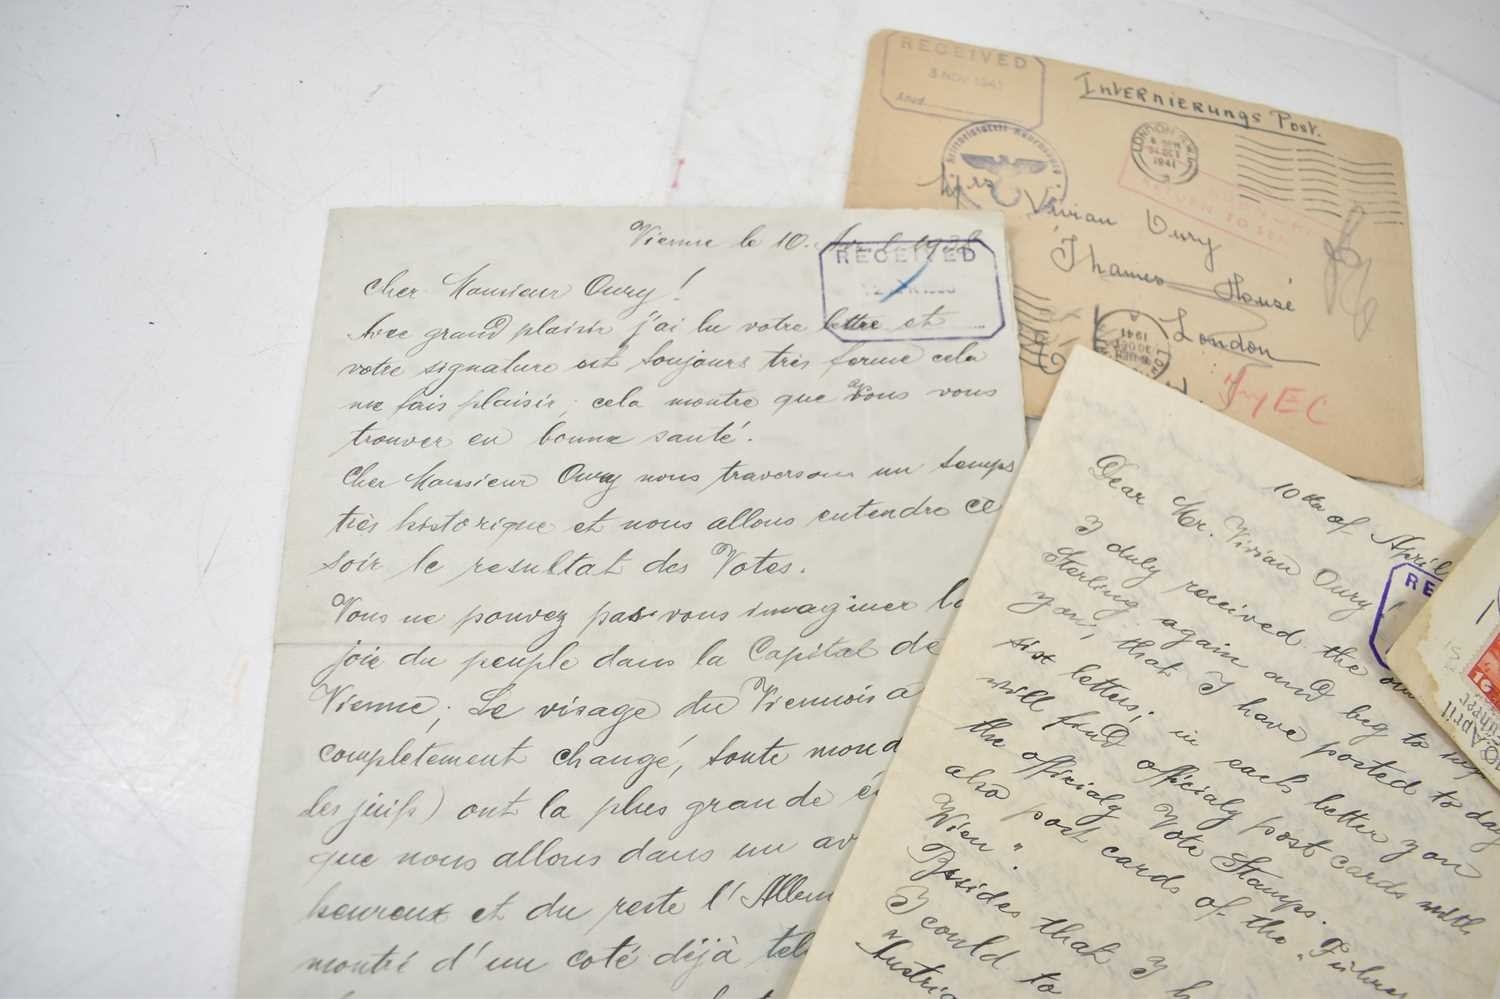 RECEIVED
3 NOV 1941
Ansd.
Internierungs Post.
LONDON
1941
Mrs Vivian Oury
Thames House
London
1941
Try EC
Vienne le 10. Avril 1938
RECEIVED
Cher Monsieur Oury!
Avec grand plaisir j'ai lu votre lettre et
votre signature est toujours très ferme cela
me fais plaisir, cela montre que vous vous
trouver en bonne santé.
Cher Monsieur Oury nous traversons un temps
très historique et nous allons entendre ce
soir le resultat des Votes.
Vous ne pouvez pas vous imaginer la
joie du peuple dans la Capital de
Vienne; Le visage du Viennois a
completement changé, toute mond
les juifs) ont la plus grande
que nous allons dans un av
heureux et du reste l'Allem
montré d'un coté déjà tel
10th of April
Dear Mr. Vivian Oury!
RE
I duly received the
Sterling again and beg to
you, that I have posted to day
six letters; in each letter you
will find officialy post cards with
the officialy Vote Stamps.
also post cards of the "Führer
Wien".
Besides that I h
I could to
Austria
April